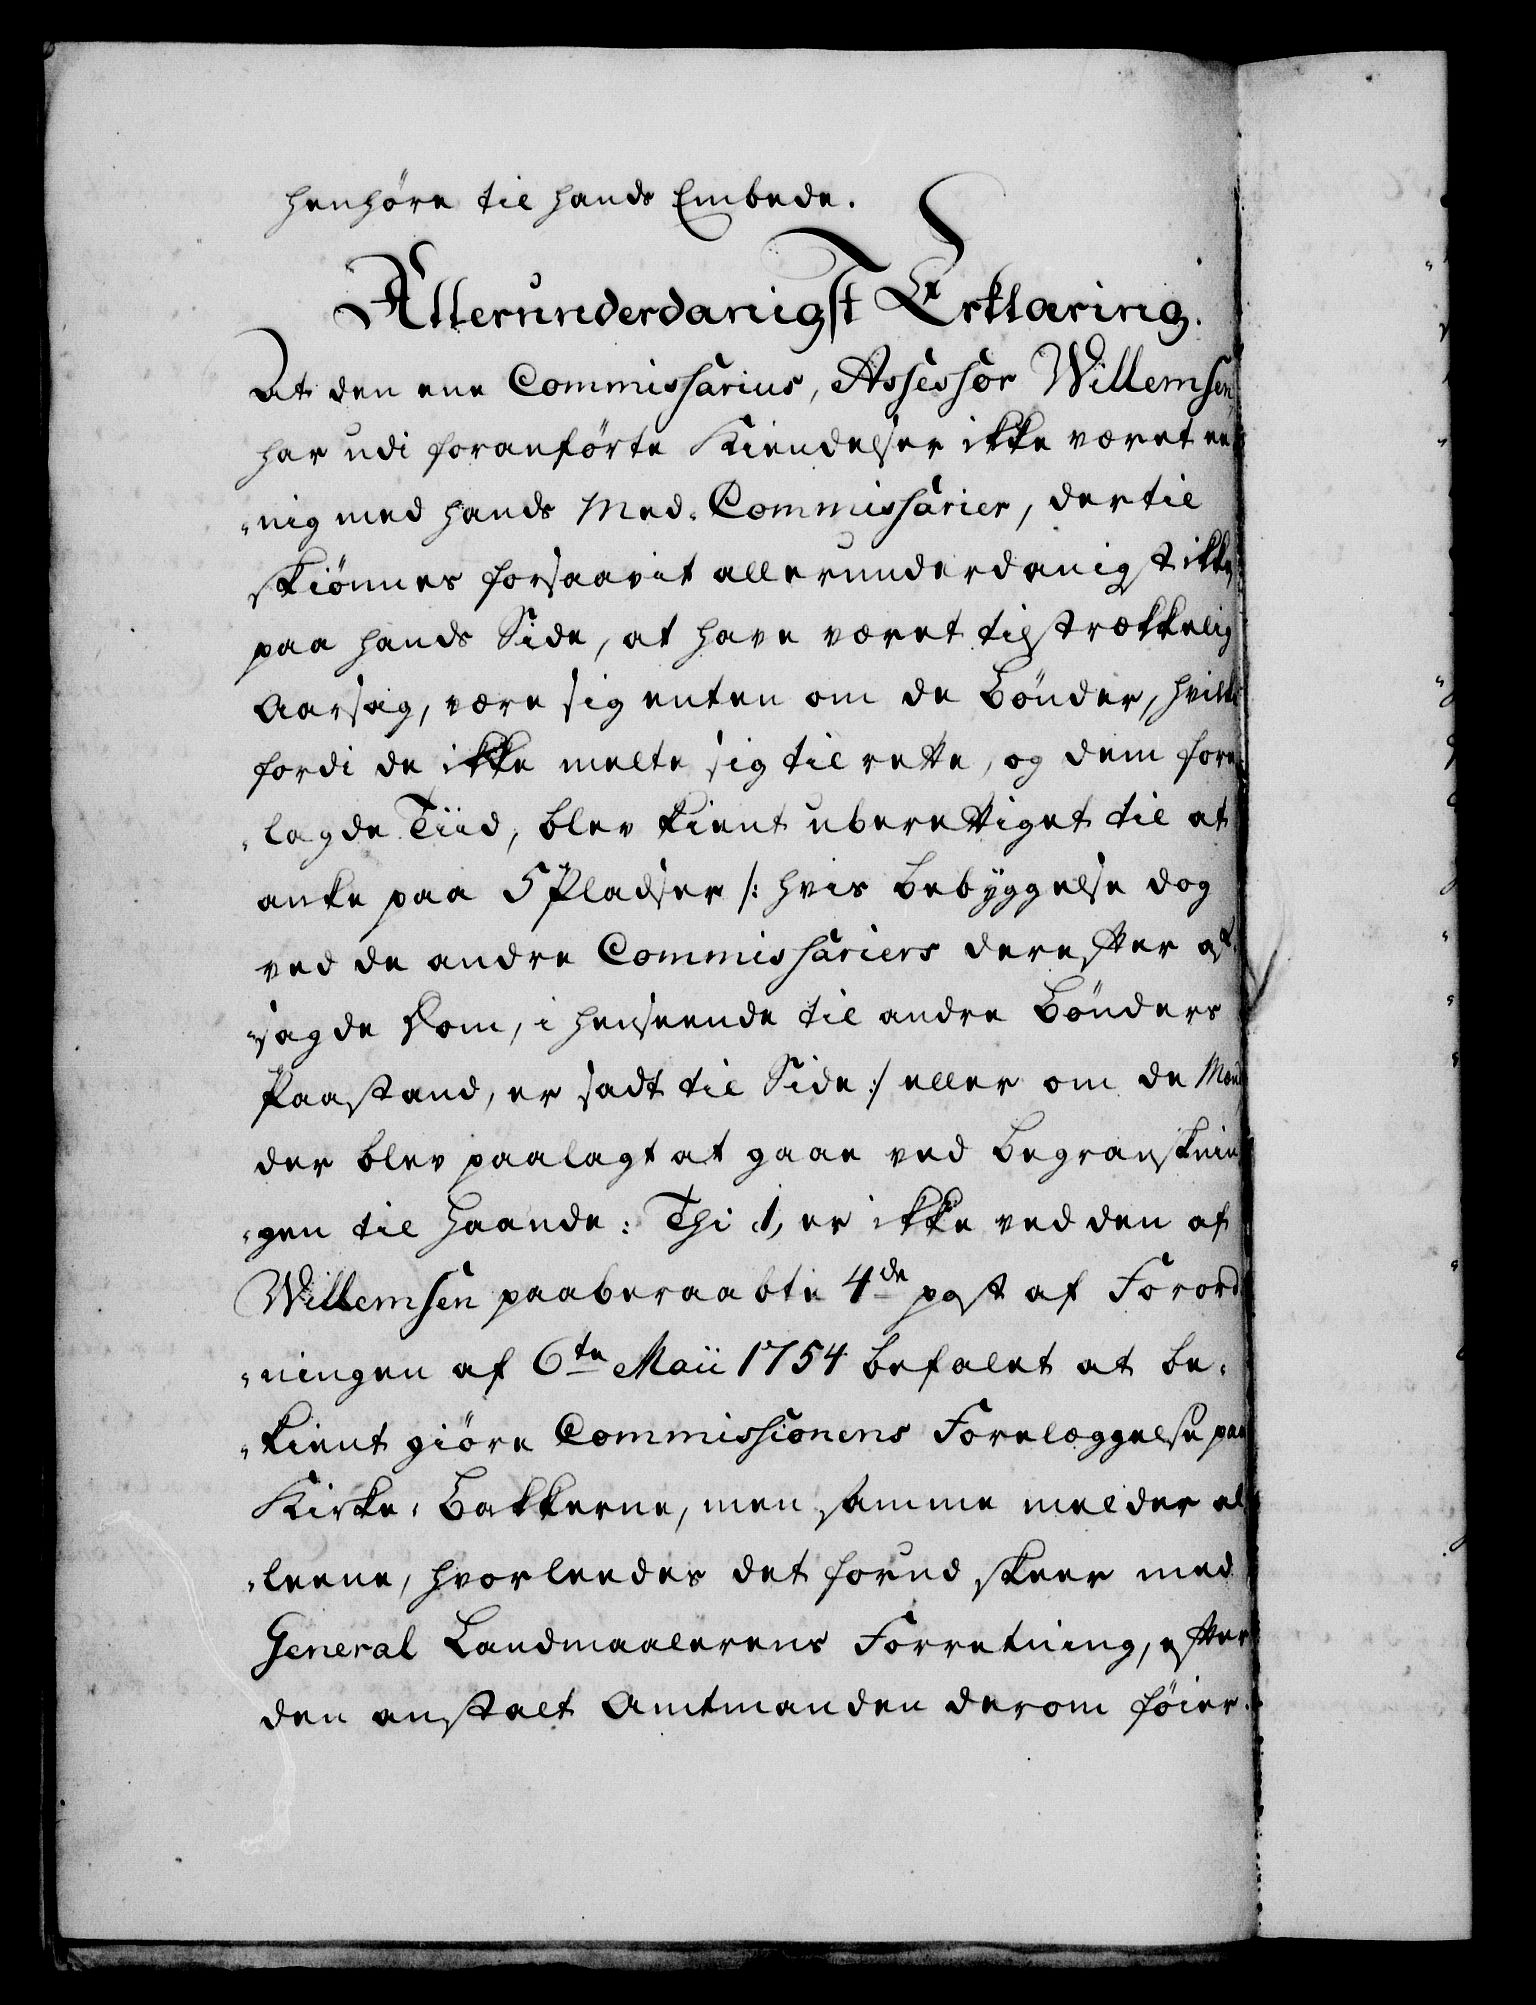 henhøre til hands Embede.
Allerunderdanigst Erklæring.
At den ene Commissarius, Assessor Willemsen,
har udi foranførte Kiendelser ikke været ee
„nig med hands Med-Commissarier, dertil
skiønnes forsaavit allerunderdanigst ikke,
paa hands Side, at have været tilstrækkelig
Aarsag, være sig enten om de Bønder, hvilke
fordi de ikke melte sig til rette, og dem fore
„lagde Tiid, blev kient uberettiget til at
anke paa 5 Pladser /: hvis bebyggelse dog
ved de andre Commissariers derefter af-
„sagde Dom, i henseende til andre Bønders
Paastand, er sadt til Side :/ eller om de Mænd
der blev paalagt at gaae ved begransknin
„gen til haande: Thi 1, er ikke ved den af
Willemsen paaberaabte 4de post af Forord
„ningen af 6te Maii 1754 befalet at be-
„kient giøre Commissionens Forelæggelse paa
Kirke-Bakkerne, men samme melder al
„leene, hvorleedes det forud skeer med
General Landmaalerens Forretning, efter
den anstalt Amtmanden derom føier.